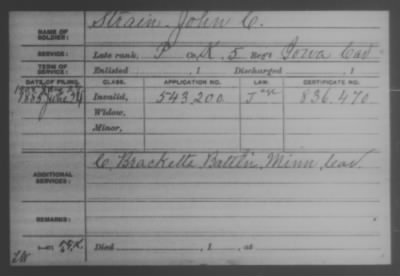 NAME OF SOLDIER: Strain, John C.
SERVICE: Late rank, P Co. K, 5 Reg't Iowa Cav
TERM OF SERVICE: Enlisted , 1 Discharged , 1
DATE OF FILING. CLASS. APPLICATION NO. LAW. CERTIFICATE NO.
1885 June 24 Invalid, 543,200 J 836,470
Widow,
Minor,
ADDITIONAL SERVICES: C. Bracketts Battln. Minn. Cav.
REMARKS:
Died , 1 , at